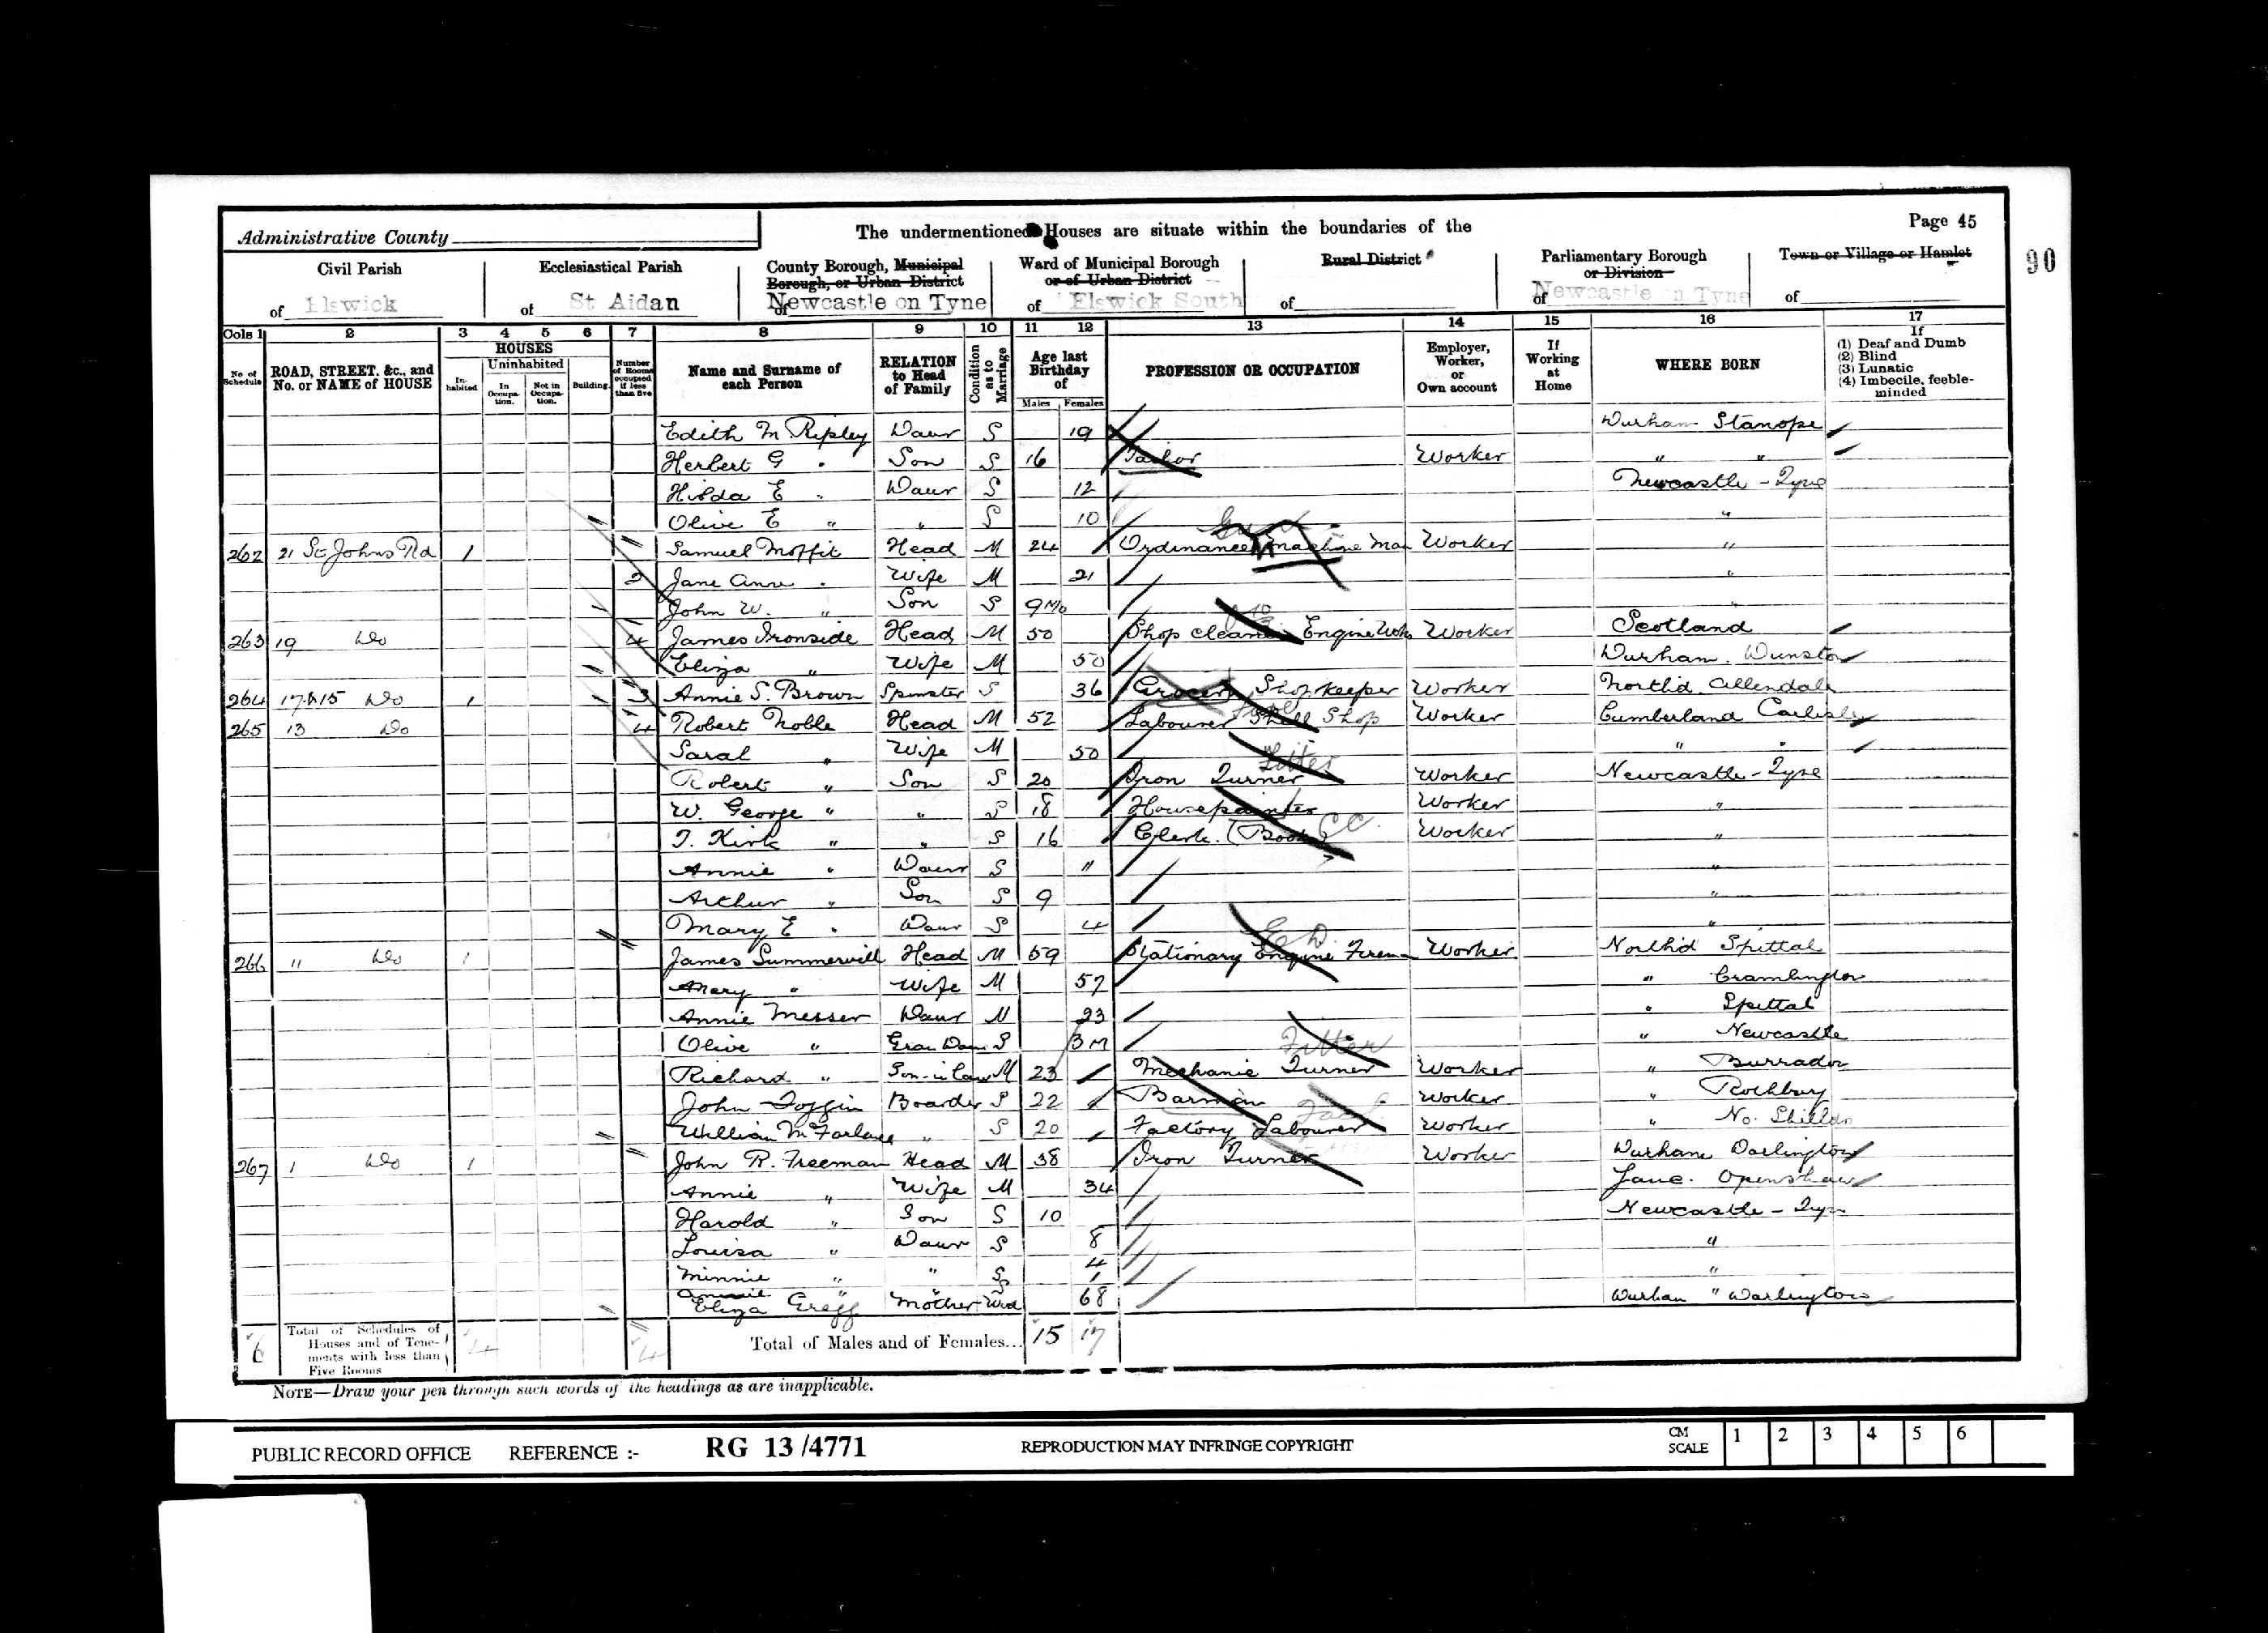 Page 45
90
Administrative County
The undermentioned Houses are situate within the boundaries of the
Civil Parish
of Elswick
Ecclesiastical Parish
of St Aidan
County Borough, Municipal
Borough, or Urban District
of Newcastle on Tyne
Ward of Municipal Borough
or of Urban District
of Elswick South
Rural District
of
Parliamentary Borough
or Division
of Newcastle on Tyne
Town or Village or Hamlet
of
Cols 1 2 3 4 5 6 7 8 9 10 11 12 13 14 15 16 17
No of Schedule
ROAD, STREET, &c., and No. or NAME of HOUSE
HOUSES
Inhabited
Uninhabited
In Occupation.
Not in Occupation.
Building
Number of Rooms occupied if less than five
Name and Surname of each Person
RELATION to Head of Family
Condition as to Marriage
Age last Birthday of
Males Females
PROFESSION OR OCCUPATION
Employer, Worker, or Own account
If Working at Home
WHERE BORN
If
(1) Deaf and Dumb
(2) Blind
(3) Lunatic
(4) Imbecile, feeble-minded
Edith M Ripley Daur S 19 Durham Stanope
Herbert G " Son S 16 Tailor Worker " "
Hilda E " Daur S 12 Newcastle - Tyne
Olive E " " S 10 "
Gun
262 21 St Johns Rd 1 Samuel Moffit Head M 24 Ordinance Machine Man Worker "
2 Jane Ann " Wife M 21 "
John W. " Son S 9 Mo "
263 19 Do 4 James Ironside Head M 50 Shop cleaner Engine Wks Worker Scotland
Eliza " Wife M 50 Durham. Dunston
264 17 & 15 Do 1 3 Annie S. Brown Spinster S 36 Grocery Shopkeeper Worker North'd. Allendale
265 13 Do 4 Robert Noble Head M 52 Labourer Shell Shop Worker Cumberland Carlisle
Sarah " Wife M 50 " "
Fitter
Robert " Son S 20 Iron Turner Worker Newcastle - Tyne
W. George " " S 18 Housepainter Worker "
T. Kirk " " S 16 Clerk. (Book) CC. Worker "
Annie " Daur S 11 "
Arthur " Son S 9 "
Mary E " Daur S 4 "
E D.
266 11 Do 1 James Summervill Head M 59 Stationary Engine Fireman Worker North'd Spittal
Mary " Wife M 57 " Cramlington
Annie Messer Daur M 23 " Spittal
Olive " Gran Daur S 3 M " Newcastle
Fitter
Richard " Son-in-law M 23 Mechanic Turner Worker " Burradon
John Foggin Boarder S 22 Barman Worker " Rothbury
William McFarlane " S 20 Factory Labourer Worker " No. Shields
267 1 Do 1 John R. Freeman Head M 38 Iron Turner Worker Durham Darlington
Annie " Wife M 34 Lanc. Openshaw
Harold " Son S 10 Newcastle - Tyne
Louisa " Daur S 8 "
Minnie " " S 4 "
Annie " " S 1 "
Eliza Gregg Mother Wid 68 Durham Darlington
6 Total of Schedules of Houses and of Tenements with less than Five Rooms 4 4 Total of Males and of Females... 15 17
NOTE—Draw your pen through such words of the headings as are inapplicable.
PUBLIC RECORD OFFICE REFERENCE :- RG 13 /4771 REPRODUCTION MAY INFRINGE COPYRIGHT CM SCALE 1 2 3 4 5 6